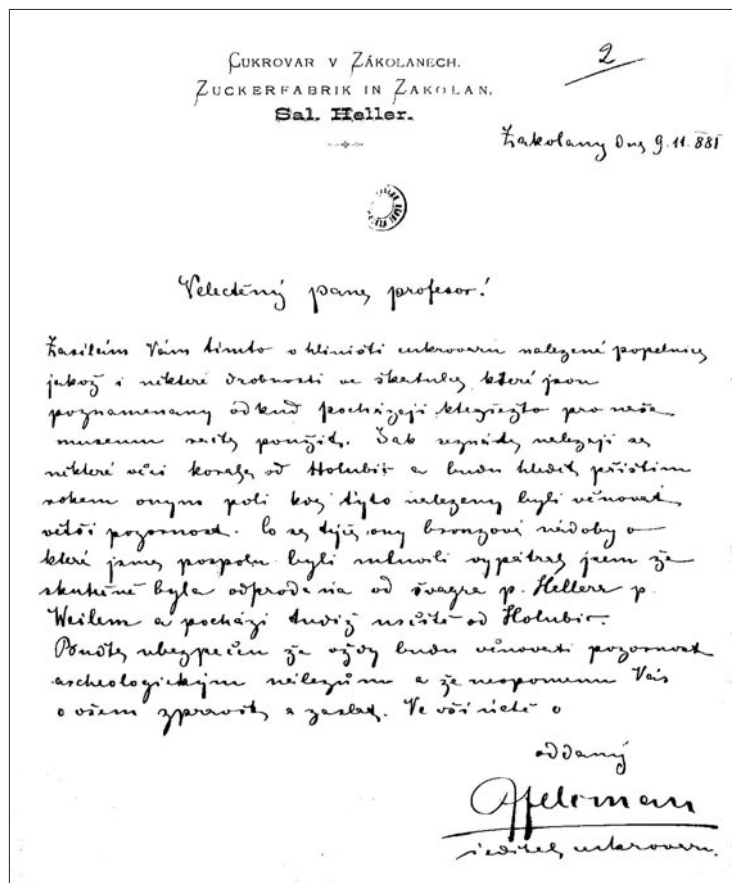 CUKROVAR V ZÁKOLANECH.
2
ZUCKERFABRIK IN ZAKOLAN.
Sal. Heller.
Zakolany dne 9. 11. 881
Velectěný pane profesor!
Zasílám Vám tímto v hliništi cukrovaru nalezené popelnice
jakož i některé drobnosti ve škatulce které jsou
poznamenány odkud pocházejí kteréžto pro naše
museum račte použíti. Jak seznáte nalezají se
některé věci korale od Holubic a budu hledět příštím
rokem onyno poli kde tyto nalezeny byli věnovat
větší pozornost. Co se týče ony bronzové nádoby o
které jsme pospolu byli mluvili vypátral jsem že
skutečně byla odprodána od švagra p. Hellera p.
Weilem a pochází tudíž určitě od Holubic.
Buďte ubezpečen že vždy budu věnovati pozornost
archeologickým nálezům a že neopomenu Vás
o všem zpravit a zaslat. Ve vší úctě
oddaný
ředitel cukrovaru.